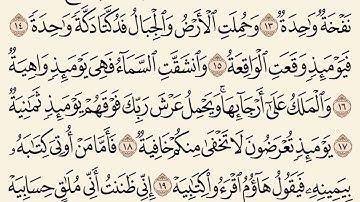 نَفْخَةٌ وَٰحِدَةٌ ١٣ وَحُمِلَتِ ٱلْأَرْضُ وَٱلْجِبَالُ فَدُكَّتَا دَكَّةً وَٰحِدَةً ١٤
فَيَوْمَئِذٍ وَقَعَتِ ٱلْوَاقِعَةُ ١٥ وَٱنشَقَّتِ ٱلسَّمَآءُ فَهِىَ يَوْمَئِذٍ وَاهِيَةٌ
١٦ وَٱلْمَلَكُ عَلَىٰٓ أَرْجَآئِهَا ۚ وَيَحْمِلُ عَرْشَ رَبِّكَ فَوْقَهُمْ يَوْمَئِذٍ ثَمَٰنِيَةٌ
١٧ يَوْمَئِذٍ تُعْرَضُونَ لَا تَخْفَىٰ مِنكُمْ خَافِيَةٌ ١٨ فَأَمَّا مَنْ أُوتِىَ كِتَٰبَهُۥ
بِيَمِينِهِۦ فَيَقُولُ هَآؤُمُ ٱقْرَءُوا۟ كِتَٰبِيَهْ ١٩ إِنِّى ظَنَنتُ أَنِّى مُلَٰقٍ حِسَابِيَهْ